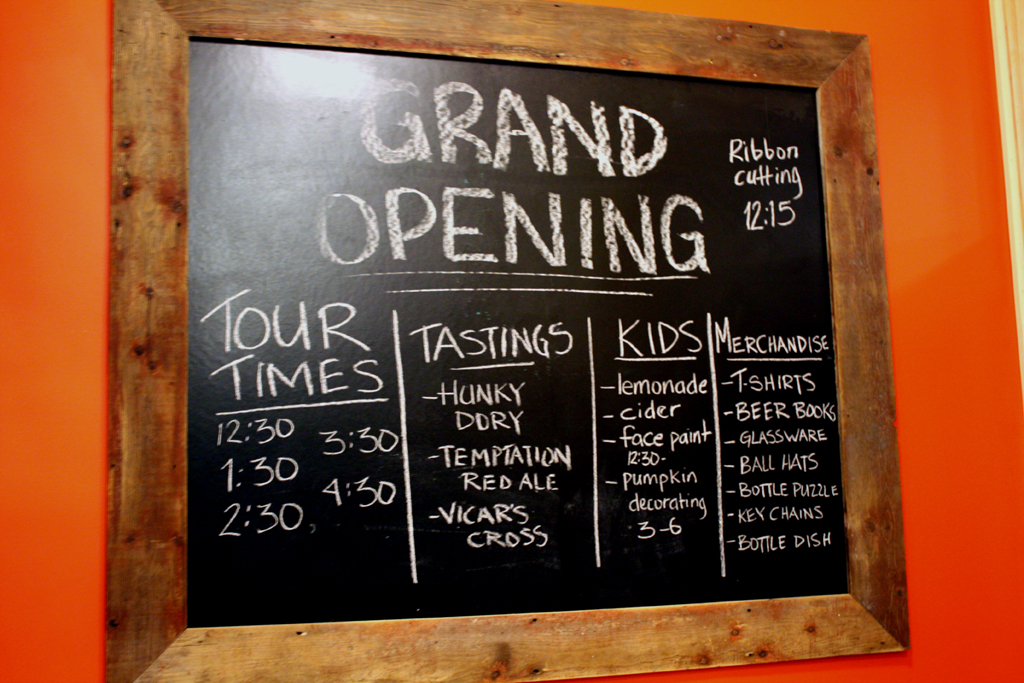 GRAND
OPENING
Ribbon
cutting
12:15
TOUR
TIMES
12:30
1:30
2:30
3:30
4:30
TASTINGS
- HUNKY
DORY
- TEMPTATION
RED ALE
- VICAR'S
CROSS
KIDS
- lemonade
- cider
- face paint
12:30-
- pumpkin
decorating
3-6
MERCHANDISE
- T-SHIRTS
- BEER BOOKS
- GLASSWARE
- BALL HATS
- BOTTLE PUZZLE
- KEY CHAINS
- BOTTLE DISH